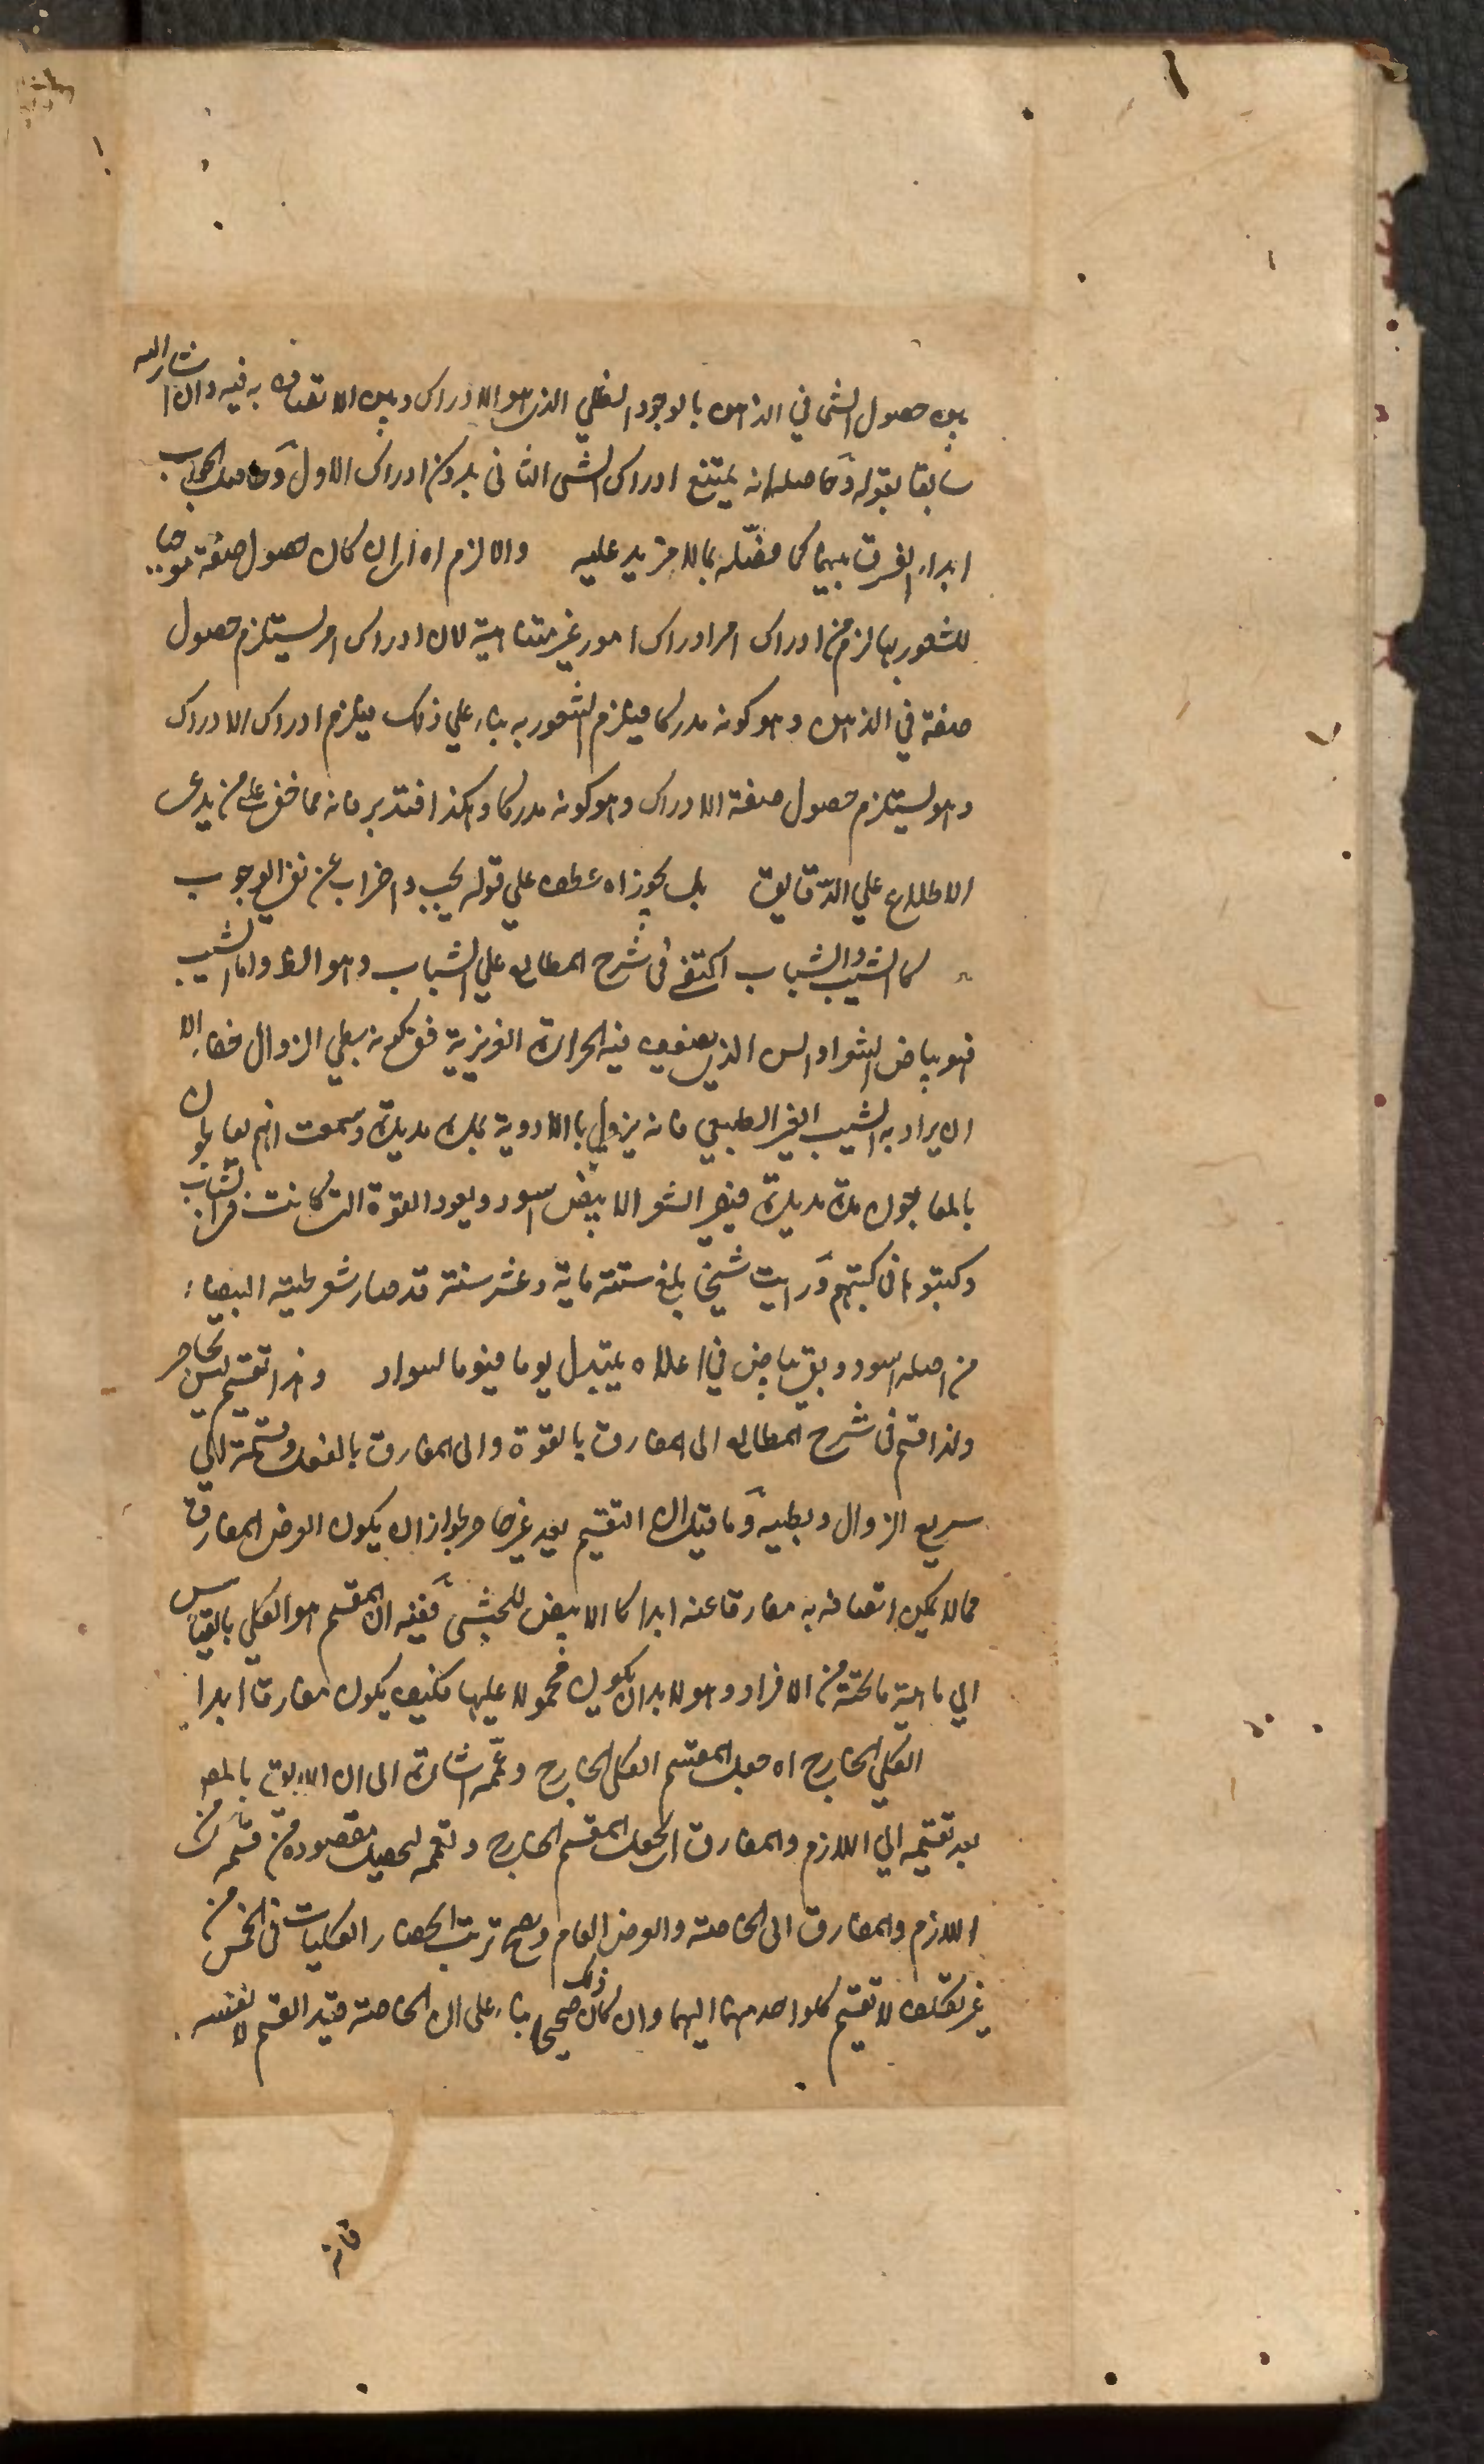 بين حصول الشئ في الذهن بالوجود الظلي الذى هو الادراك وبين الاتصاف به فيه وان اشار اليه
سابقا بقوله وحاصله انه يمتنع ادراك الشئ الثانى بدون ادراك الاول وحاصل الجواب
ابداء الفرق بينهما كما فصّله بما لا مزيد عليه والا لزم اه اى ان كان حصول صفة موجبا
للشعور بها لزم من ادراك امر ادراك امور غير متناهية لان ادراك امر يستلزم حصول
صفة في الذهن وهو كونه مدركا فيلزم الشعور به بناء علي ذلك فيلزم ادراك الادراك
وهو يستلزم حصول صفة الادراك وهو كونه مدركا وهكذا فتدبر فانه مما خفى على من يدعى
الاطلاع علي الدّقايق بل يجوز اه عطف علي قوله يجب واضراب عن نفى الوجوب
كالشيب والشباب اكتفى فى شرح المطالع علي الشباب وهو الظ واما الشيب
فهو بياض الشعر او السن الذى يضعف فيه الحرارة الغريزية فى كونه بطي الزوال خفاء الا
ان يراد به الشيب الغير الطبيعي فانه يزول بالادوية بمدة مديدة وسمعت انهم يعالجون
بالمعاجون مدة مديدة فيصير الشعر الابيض اسود ويعود القوة التى كانت فى زمان الشباب
وكتبوها فى كتبهم ورايت شيخا بلغ سنه ماية وعشر سنة قد صار شعر لحيته البيضاء
من اصله اسود وبقى بياض في اعلاه يتبدل يوما فيوما لسواد وهذا تقسيم ليس بحاصر
ولذا قسم فى شرح المطالع الى المفارق بالقوة والى المفارق بالفعل وقسمه الي
سريع الزوال وبطيه وما قيل ان التقسيم بعد غير حاصر لجواز ان يكون العرض المفارق
مما لا يمكن اتصافه به مفارقا عنه ابدا كالابيض للحبشى ففيه ان المقسم هو الكلي بالقياس
الي ماهية ما تحته من الافراد وهو لا بد ان يكون محمولا عليها فكيف يكون مفارقا ابدا
الكلي الخارج اه جعل المقسم الكلى الخارج وعمّه اشارة الى ان اللايق بالمص
بعد تقسيمه الي اللازم والمفارق ان يجعل المقسم الخارج وتعمه لتحصيل مقصوده من قسمة كل من
اللازم والمفارق الى الخاصة والعرض العام ويصح ترتب انحصار الكليات فى الخمس من
غير تكلف لا تقسيم كل واحد منهما اليهما وان كان ذلك صحيحا بناء على ان الخاصة قيد القسم لا نفسه
فانه